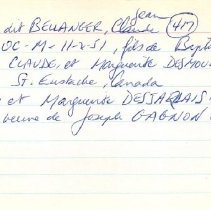 Jean
dit BELLANGER, Claude (417)
OC-M-11-2-51, fils de Baptiste
CLAUDE, et Marguerite DESMOU
St. Eustache, Canada
et Marguerite DESJARLAIS,
veuve de Joseph GAGNON